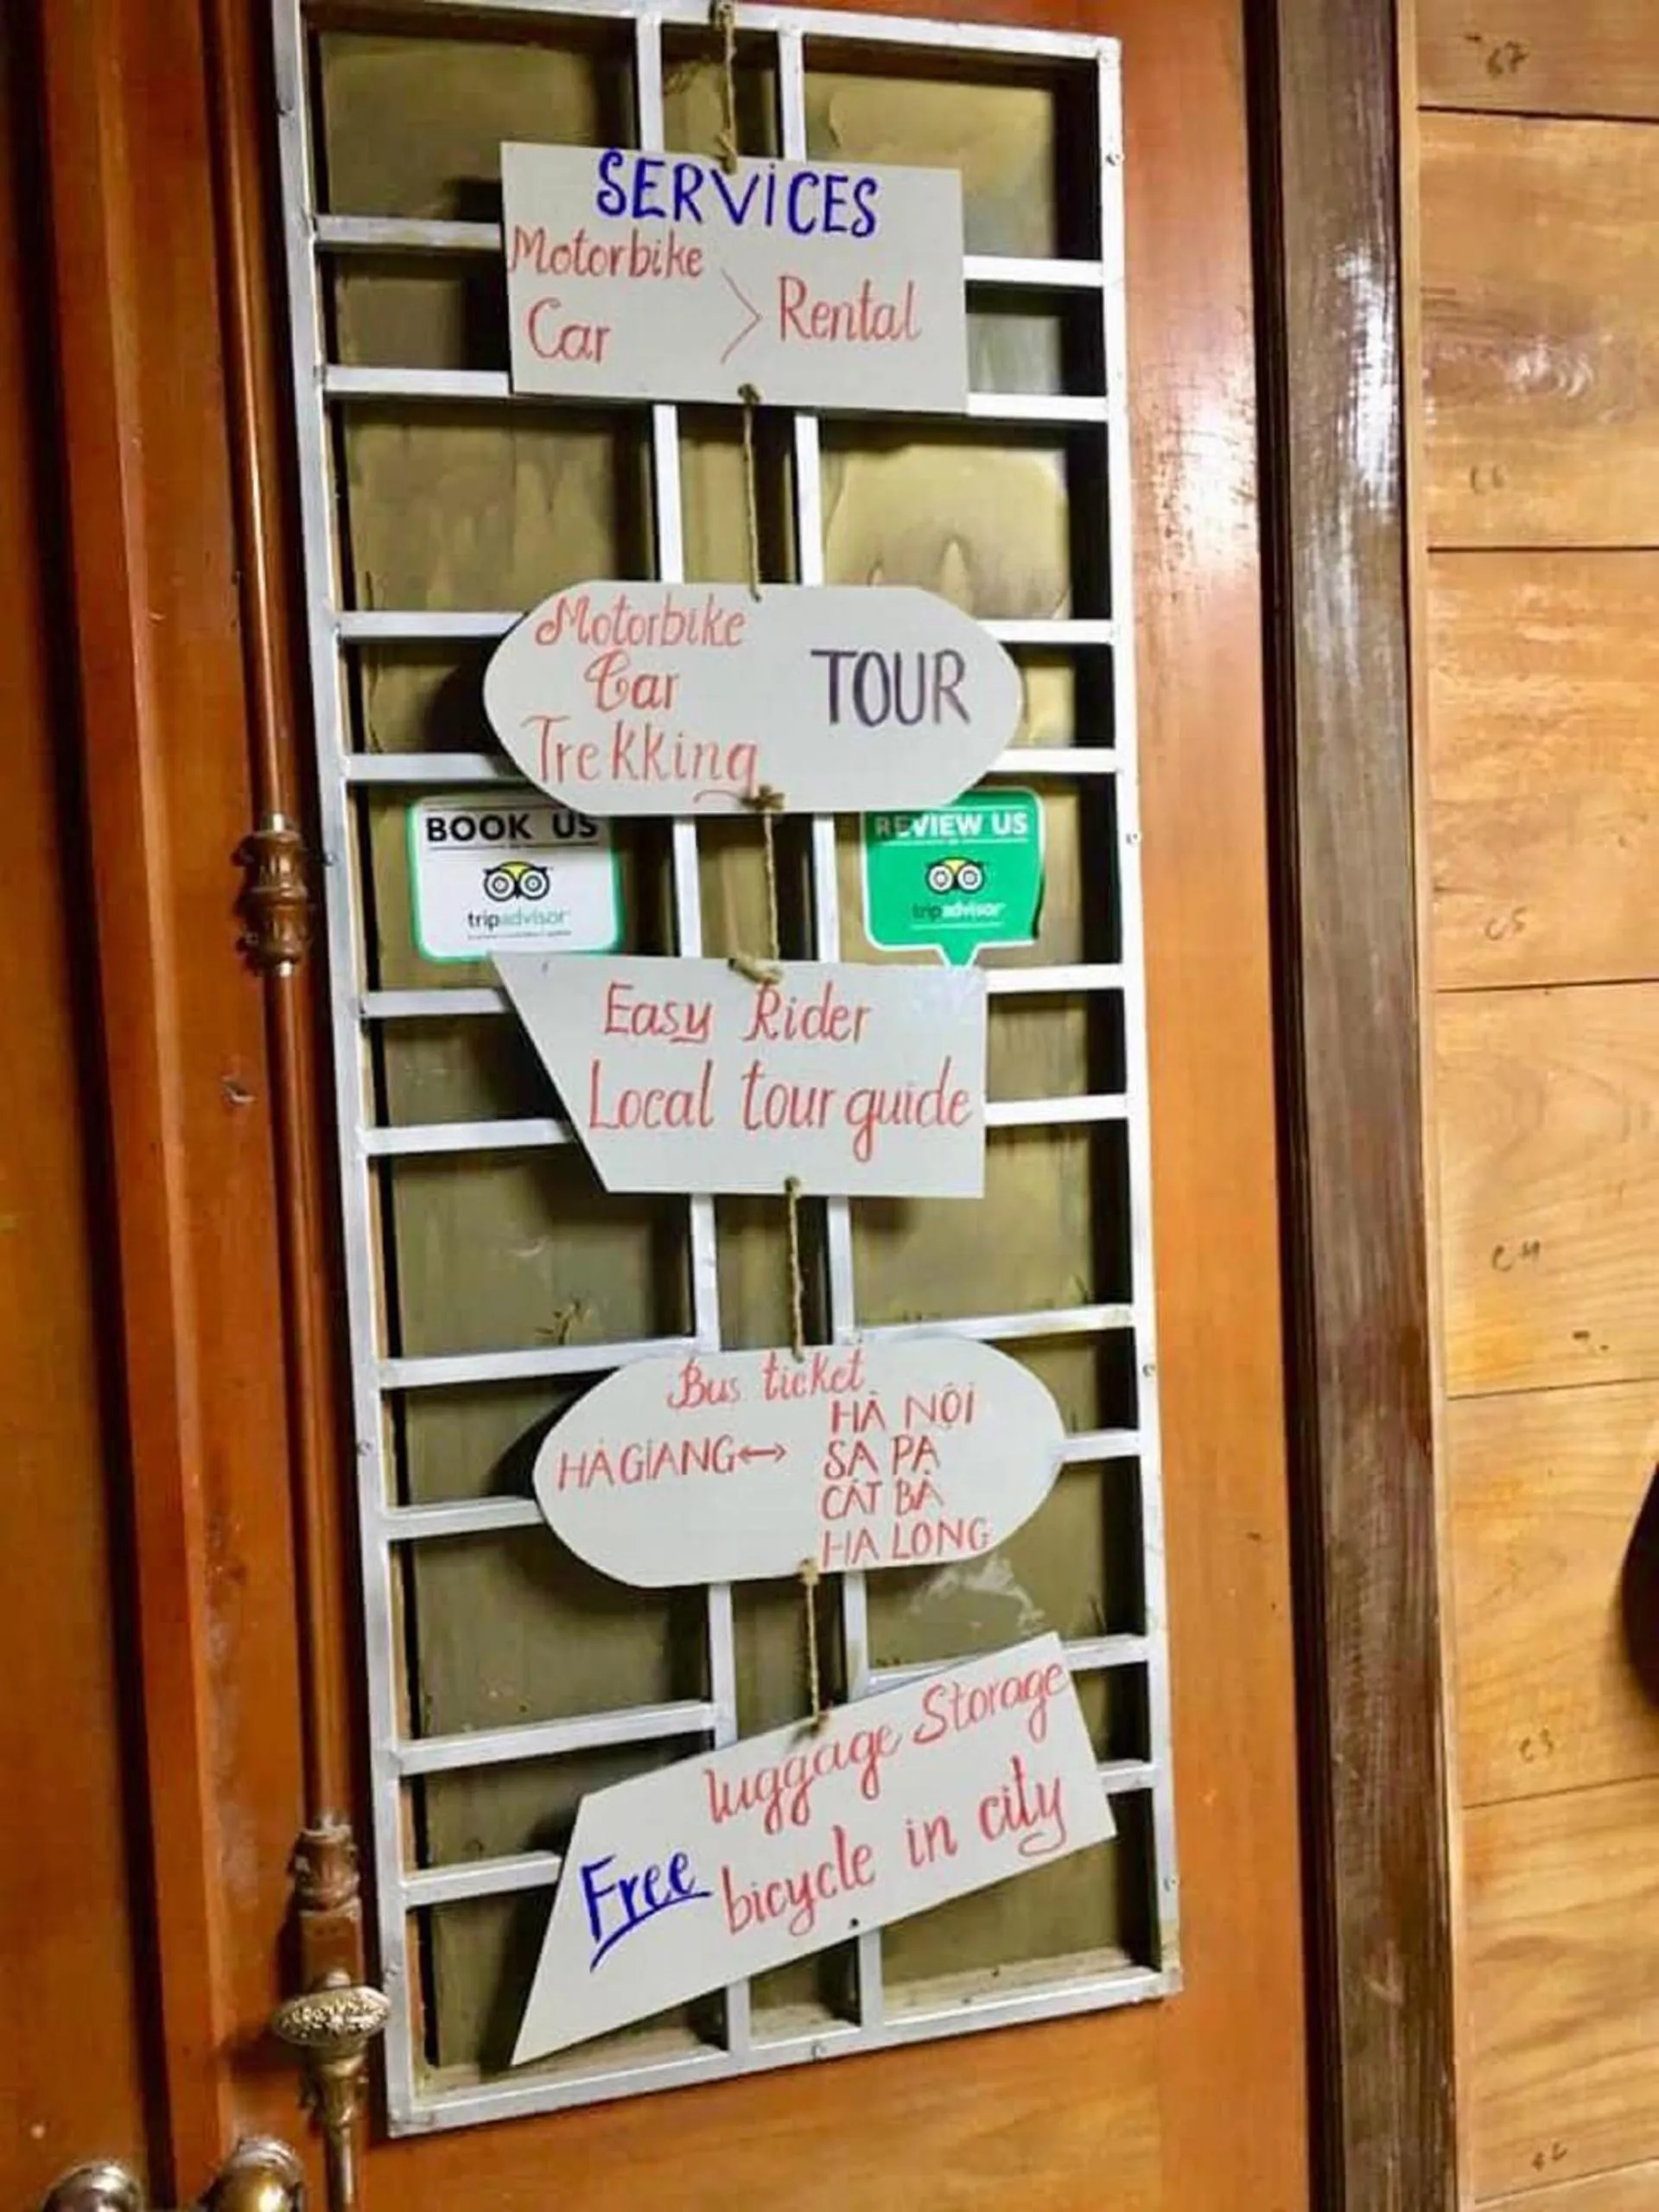 SERVICES
Motorbike
Car > Rental
Motorbike
Car TOUR
Trekking
BOOK US
tripadvisor
REVIEW US
tripadvisor
Easy Rider
Local tour guide
Bus ticket
HÀ GIANG ↔ HÀ NỘI
SA PA
CÁT BÀ
HẠ LONG
luggage Storage
Free bicycle in city
67
C6
C5
C4
C3